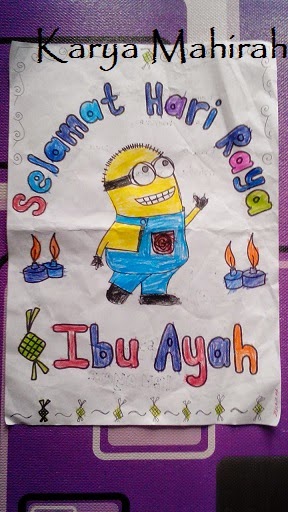 Karya Mahirah
Selamat Hari Raya
Ibu Ayah